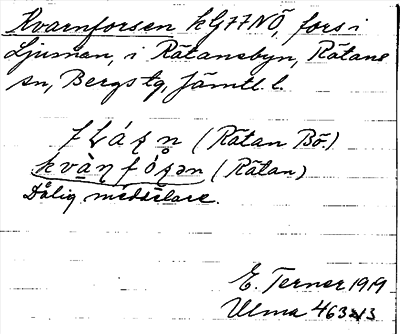 Kvarnforsen kG77NÖ, fors i
Ljusnan, i Rätansbyn, Rätans
sn, Bergs tg, Jämtl. l.
(Rätan Bö.)
kvàɳfóʂən (Rätan)
Dålig meddelare.
E. Terner 1919
Ulma 463:13